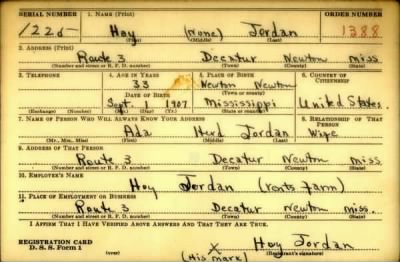 SERIAL NUMBER 1. NAME (Print) ORDER NUMBER
1225 Hoy (none) Jordan 1388
(First) (Middle) (Last)
2. ADDRESS (Print)
Route 3 Decatur Newton miss
(Number and street or R. F. D. number) (Town) (County) (State)
3. TELEPHONE 4. AGE IN YEARS 5. PLACE OF BIRTH 6. COUNTRY OF CITIZENSHIP
33 Newton Newton
DATE OF BIRTH (Town or county)
Sept. 1 1907 Mississippi United States.
(Exchange) (Number) (Mo.) (Day) (Yr.) (State or country)
7. NAME OF PERSON WHO WILL ALWAYS KNOW YOUR ADDRESS 8. RELATIONSHIP OF THAT PERSON
Ada Hurd Jordan Wife
(Mr., Mrs., Miss) (First) (Middle) (Last)
9. ADDRESS OF THAT PERSON
Route 3 Decatur Newton miss.
(Number and street or R. F. D. number) (Town) (County) (State)
10. EMPLOYER'S NAME
Hoy Jordan (rents Farm)
11. PLACE OF EMPLOYMENT OR BUSINESS
Route 3 Decatur Newton miss.
(Number and street or R. F. D. number) (Town) (County) (State)
I AFFIRM THAT I HAVE VERIFIED ABOVE ANSWERS AND THAT THEY ARE TRUE.
REGISTRATION CARD
D. S. S. Form 1 x Hoy Jordan
(His mark) (Registrant's signature)